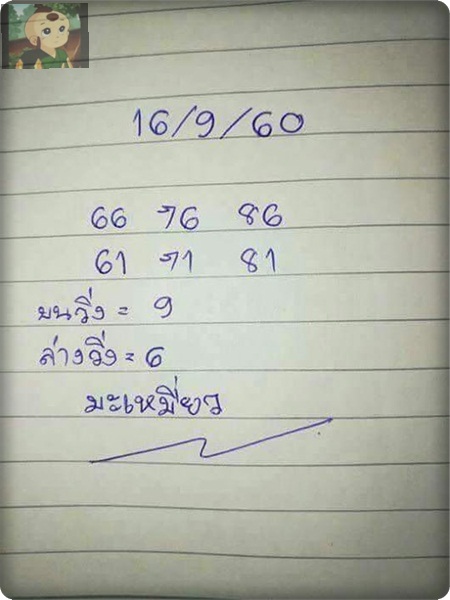 16/9/60
66 76 86
61 71 81
บนวิ่ง = 9
ล่างวิ่ง = 6
มะเหมี่ยว